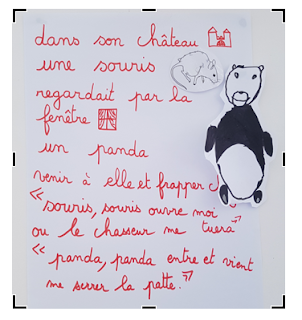 dans son château
une souris
regardait par la
fenêtre
un panda
venir à elle et frapper
"souris, souris ouvre moi
ou le chasseur me tuera"
"panda, panda entre et vient
me serrer la patte."